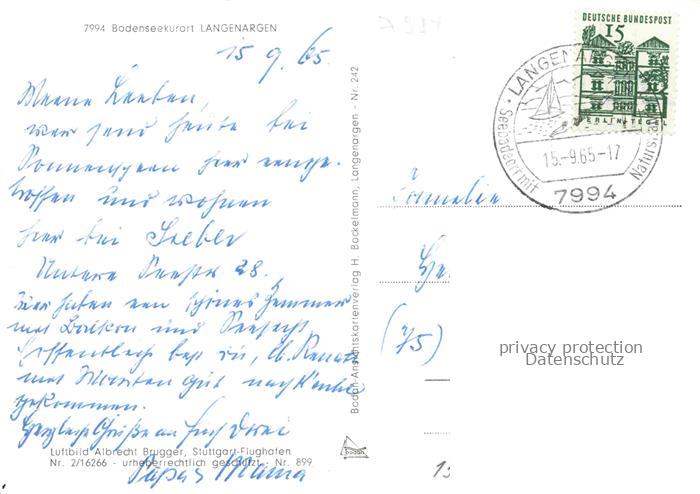 7994 Bodenseekurort LANGENARGEN
15 9./65.
Meine Lieben,
wir sind heute bei
Sonnenschein hier einge-
troffen und wohnen
hier bei
Untere Seestr 28.
Wir haben ein schönes Zimmer
mit Balkon und Seesicht
Hoffentlich bist du, lb. Renate
mit Martin gut nach Hause
gekommen.
Herzlich Grüße an Euch Drei
Papa & Mama
Luftbild Albrecht Brugger, Stuttgart-Flughafen
Nr. 2/16266 - urheberrechtlich geschützt - Nr. 899
Bodan-Ansichtskartenverlag H. Bockelmann, Langenargen - Nr. 242
bodan
DEUTSCHE BUNDESPOST
15
BERLIN-TEGEL
15.-9.65-17
7994
Familie
(75)
privacy protection
Datenschutz